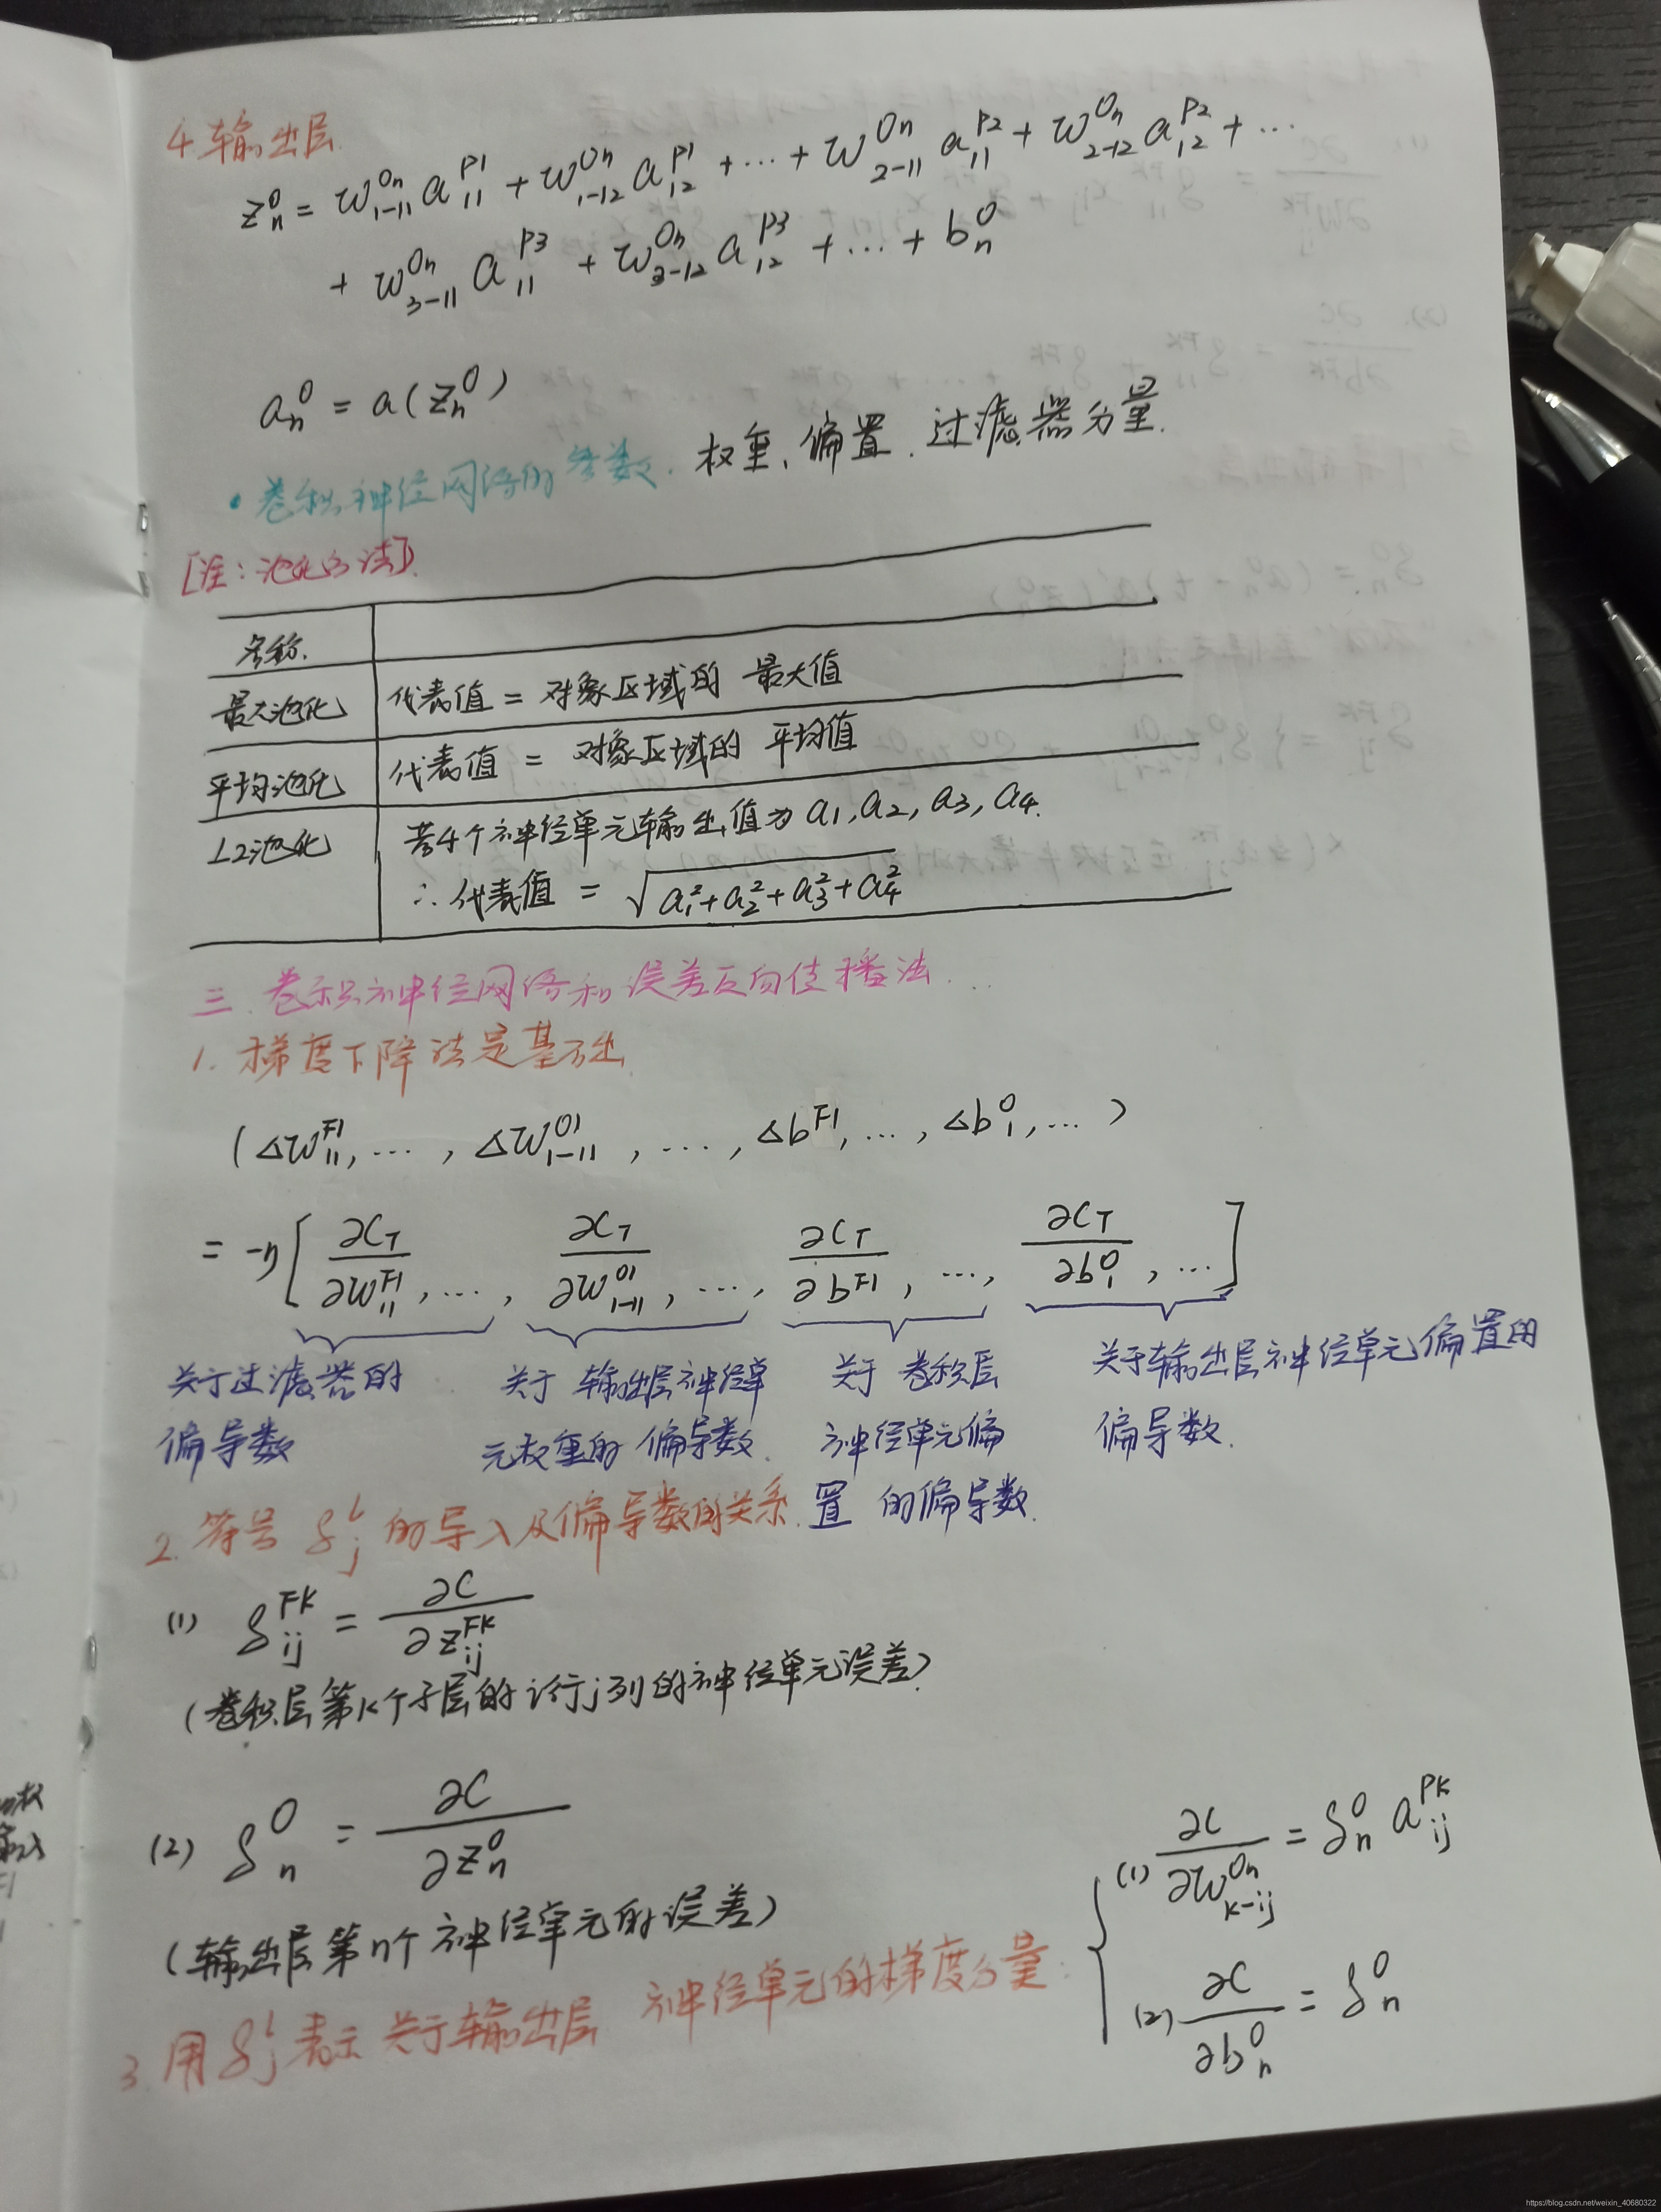 4.输出层
z_n^O = w_{1-11}^{On} a_{11}^{P1} + w_{1-12}^{On} a_{12}^{P1} + … + w_{2-11}^{On} a_{11}^{P2} + w_{2-12}^{On} a_{12}^{P2} + …
+ w_{3-11}^{On} a_{11}^{P3} + w_{3-12}^{On} a_{12}^{P3} + … + b_n^O
a_n^O = a(z_n^O)
• 卷积神经网络的参数. 权重、偏置、过滤器分量.
[注:池化方法]
名称.
最大池化 代表值 = 对象区域的 最大值
平均池化 代表值 = 对象区域的 平均值
L2池化 若4个神经单元输出值为 a1, a2, a3, a4.
∴ 代表值 = √(a_1^2+a_2^2+a_3^2+a_4^2)
三. 卷积神经网络和误差反向传播法...
1. 梯度下降法是基础
(Δw_{11}^{F1}, …, Δw_{1-11}^{O1}, …, Δb^{F1}, …, Δb_1^O, …)
= -η[∂C_T/∂w_{11}^{F1}, …, ∂C_T/∂w_{1-11}^{O1}, …, ∂C_T/∂b^{F1}, …, ∂C_T/∂b_1^O, …]
关于过滤器的 关于输出层神经单 关于 卷积层 关于输出层神经单元偏置的
偏导数 元权重的偏导数. 神经单元偏 偏导数.
置 的偏导数.
2. 符号 δ_j^l 的导入及偏导数的关系.
(1) δ_{ij}^{FK} = ∂C/∂z_{ij}^{FK}
(卷积层第K个子层的i行j列的神经单元误差)
(2) δ_n^O = ∂C/∂z_n^O
(输出层第n个神经单元的误差)
3. 用 δ_j^l 表示 关于输出层 神经单元的梯度分量:
(1) ∂C/∂w_{k-ij}^{On} = δ_n^O a_{ij}^{PK}
(2) ∂C/∂b_n^O = δ_n^O
https://blog.csdn.net/weixin_40680322